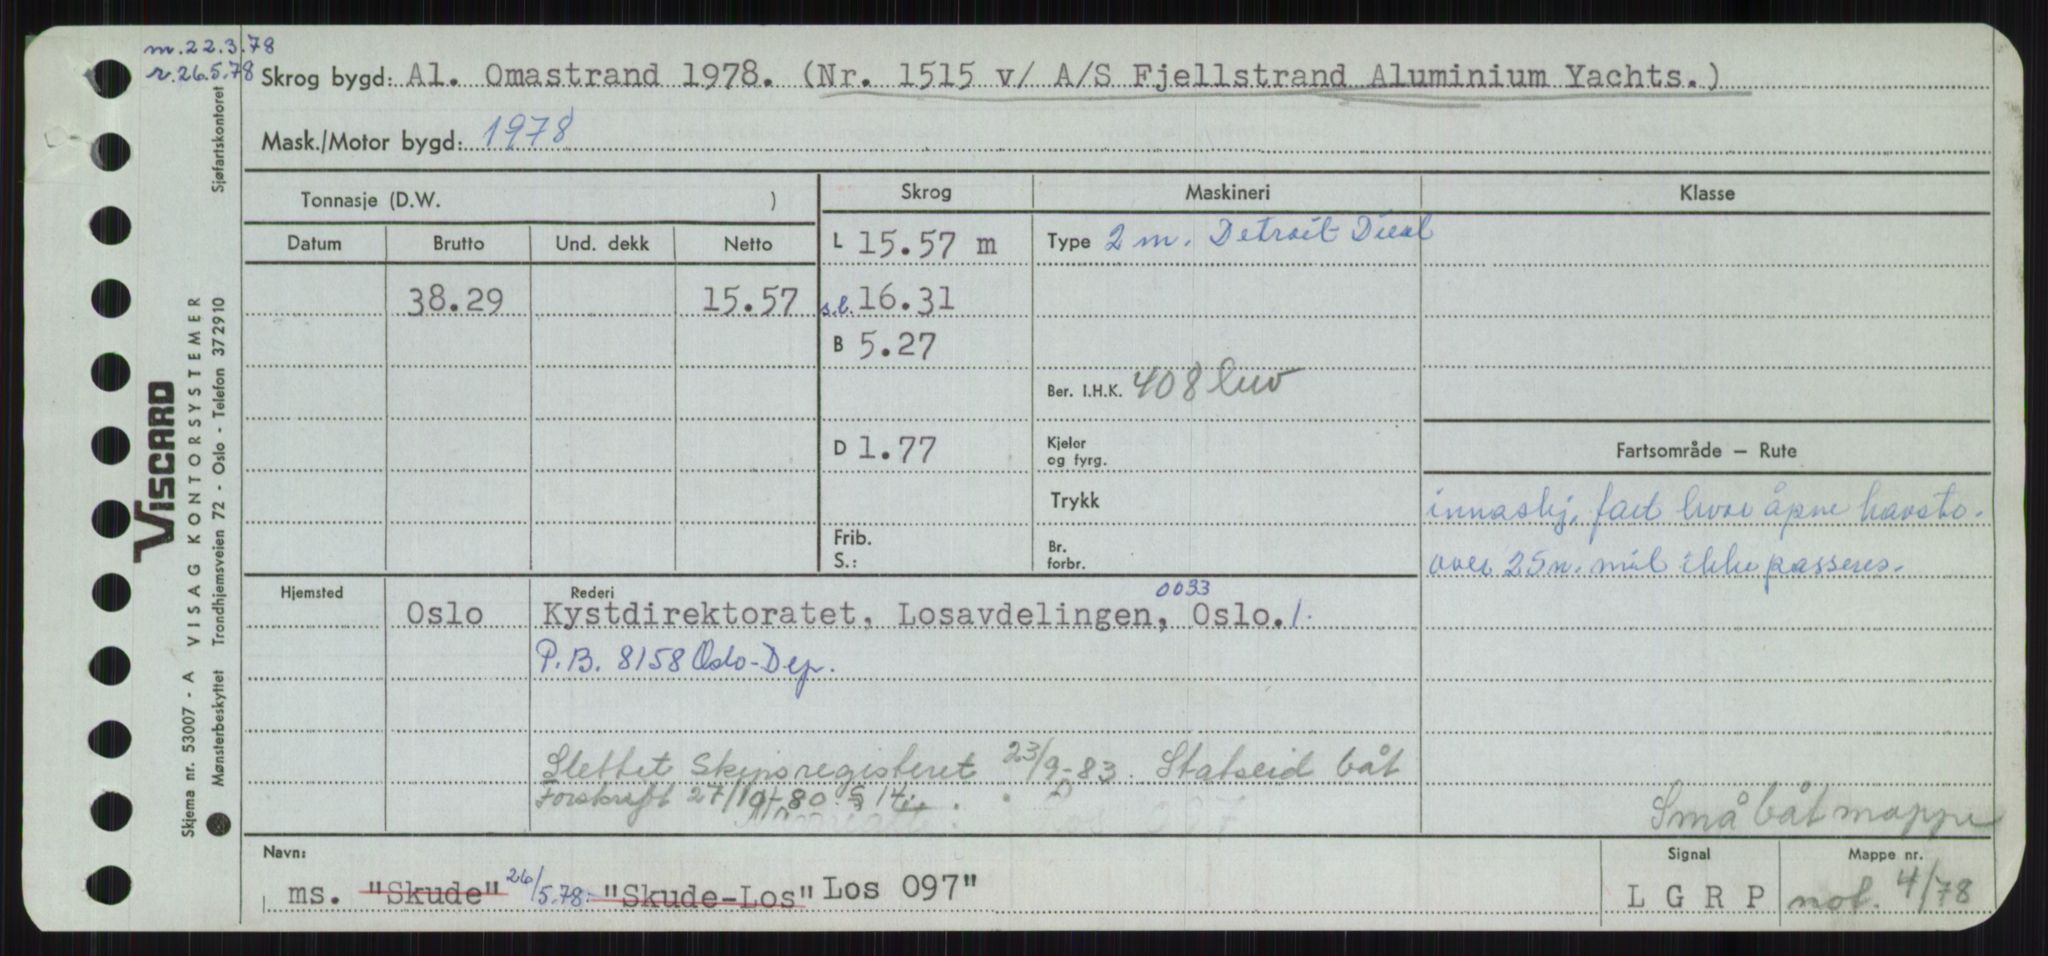 m.22.3.78
r.26.5.78
Skrog bygd: Al. Omastrand 1978. (Nr. 1515 v/ A/S Fjellstrand Aluminium Yachts.)
Mask./Motor bygd: 1978
Tonnasje (D.W. )
Skrog
Maskineri
Klasse
Datum Brutto Und. dekk Netto
38.29 15.57
L 15.57 m
s.l. 16.31
B 5.27
D 1.77
Frib.
S.:
Type 2 m. Detroit Diesel
Ber. I.H.K. 408
Kjeler
og fyrg.
Trykk
Br.
forbr.
Fartsområde – Rute
innaskj. fart hvor åpne havstr.
over 25 n. mil ikke passeres.
Hjemsted
Oslo
Rederi
0033
Kystdirektoratet, Losavdelingen, Oslo. 1.
P.B. 8158 Oslo-Dep.
Slettet Skipsregisteret 23/9-83. Statseid båt
Forskrift 27/10-80 § 14
Småbåtmappe
Navn:
ms. "Skude" 26/5.78: "Skude-Los" Los 097"
Signal
L G R P
Mappe nr.
not. 4/78
Skjema nr. 53007 - A VISAG KONTORSYSTEMER
Mønsterbeskyttet Trondhjemsveien 72 - Oslo - Telefon 37 2910 Sjøfartskontoret
VISCARD